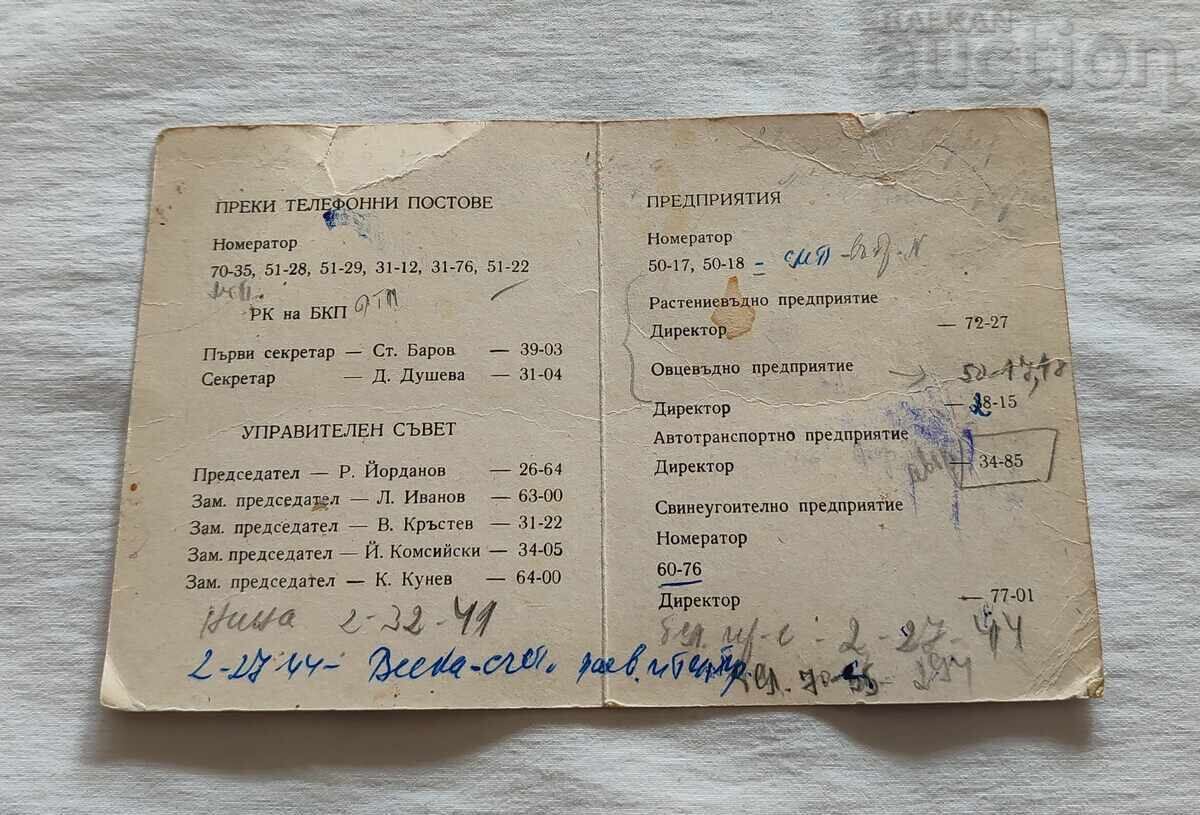 BALKAN
auction
ПРЕКИ ТЕЛЕФОННИ ПОСТОВЕ
Номератор
70-35, 51-28, 51-29, 31-12, 31-76, 51-22
РК на БКП
Първи секретар — Ст. Баров — 39-03
Секретар — Д. Душева — 31-04
УПРАВИТЕЛЕН СЪВЕТ
Председател — Р. Йорданов — 26-64
Зам. председател — Л. Иванов — 63-00
Зам. председател — В. Кръстев — 31-22
Зам. председател — Й. Комсийски — 34-05
Зам. председател — К. Кунев — 64-00
Нина 2-32-41
2-27-44- Веска-счет.
ПРЕДПРИЯТИЯ
Номератор
50-17, 50-18 -
Растениевъдно предприятие
Директор — 72-27
Овцевъдно предприятие
50-17,18
Директор — 28-15
Автотранспортно предприятие
Директор — 34-85
Свинеугоително предприятие
Номератор
60-76
Директор — 77-01
2-27-44
70-55-